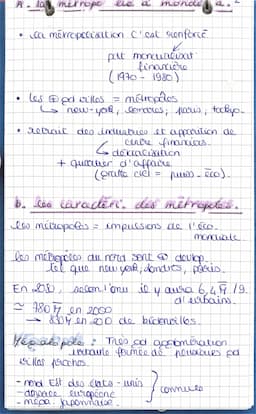 A. la métrope lié à mondia°.
• la métropolisation c'est renforcé
par mondialisat°
financière
(1970 - 1980)
• les ⊕ gd villes = métropoles
↳ new-york, Londres, paris, tokyo.
• retrait des industries et apparition de
centre financiers.
↳ délocalisation
+ quartier d'affaire
(gratte ciel = puiss - éco).
b. les caractéri. des métropoles.
les métropoles = impulsions de l'éco.
mondiale.
les métropoles du nord sont ⊕ dévlop.
tel que new york, londres, paris.
En 2050, selon l'onu il y aura 6,4
d'urbains.
en 2000
→ en de bidonvilles.
Mégalopole : Très gd agglomération
urbaine formée de plusieurs gd
villes proches.
- nord Est des états-unis
- dorsale européenne
- méga. japonnaise.
connues